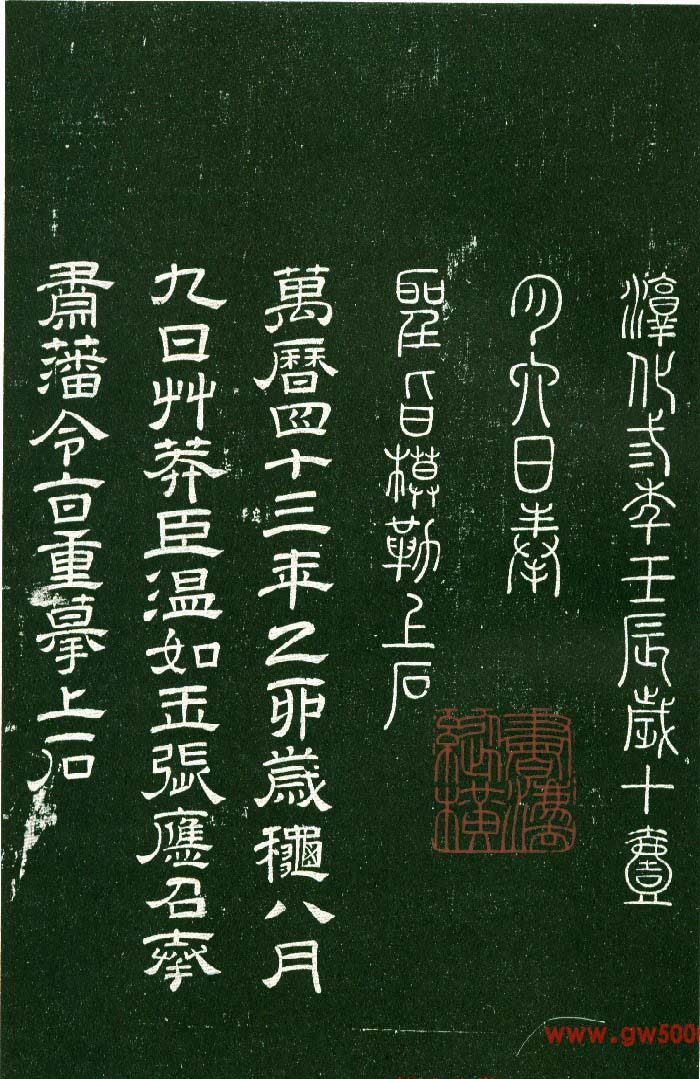 淳化三年壬辰歲十壹
月六日奉
聖旨模勒上石
萬曆四十三年乙卯歲龝八月
九日艸莽臣温如玉張應召奉
肅藩令旨重摹上石
www.gw500